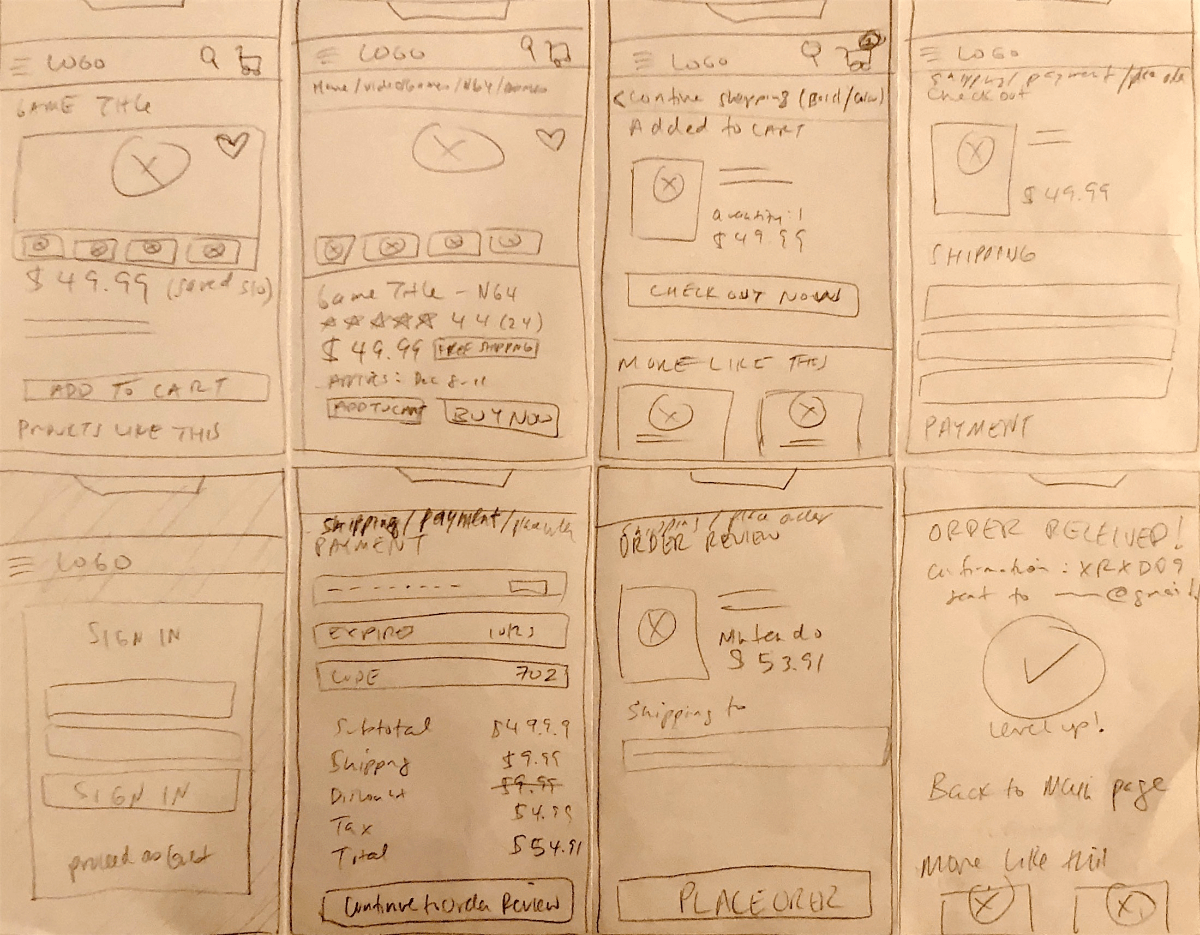 LOGO
GAME TITLE
$49.99 (saved $10)
ADD TO CART
LIKE THIS
LOGO
Home/videoGames/N64/
Game Title - N64
4 4 (24)
$49.99 FREE SHIPPING
Dec 8-11
ADD TO CART BUY NOW
LOGO
< continue shopping (Bold/Color)
Added to CART
Quantity: 1
$49.99
CHECK OUT NOW
MORE LIKE THIS
LOGO
Shipping/payment/place
Check out
$49.99
SHIPPING
PAYMENT
LOGO
SIGN IN
SIGN IN
proceed as Guest
Shipping/payment/
PAYMENT
10/23
CODE 702
Subtotal $49.9.9
Shipping $9.99
Discount $9.99
Tax $4.99
Total $54.91
Continue to Order Review
Shipping / place order
ORDER REVIEW
Nintendo
$53.91
Shipping to
PLACE ORDER
ORDER RECEIVED!
Confirmation: XRXD09
sent to @gmail
Level up!
Back to Main page
More Like this